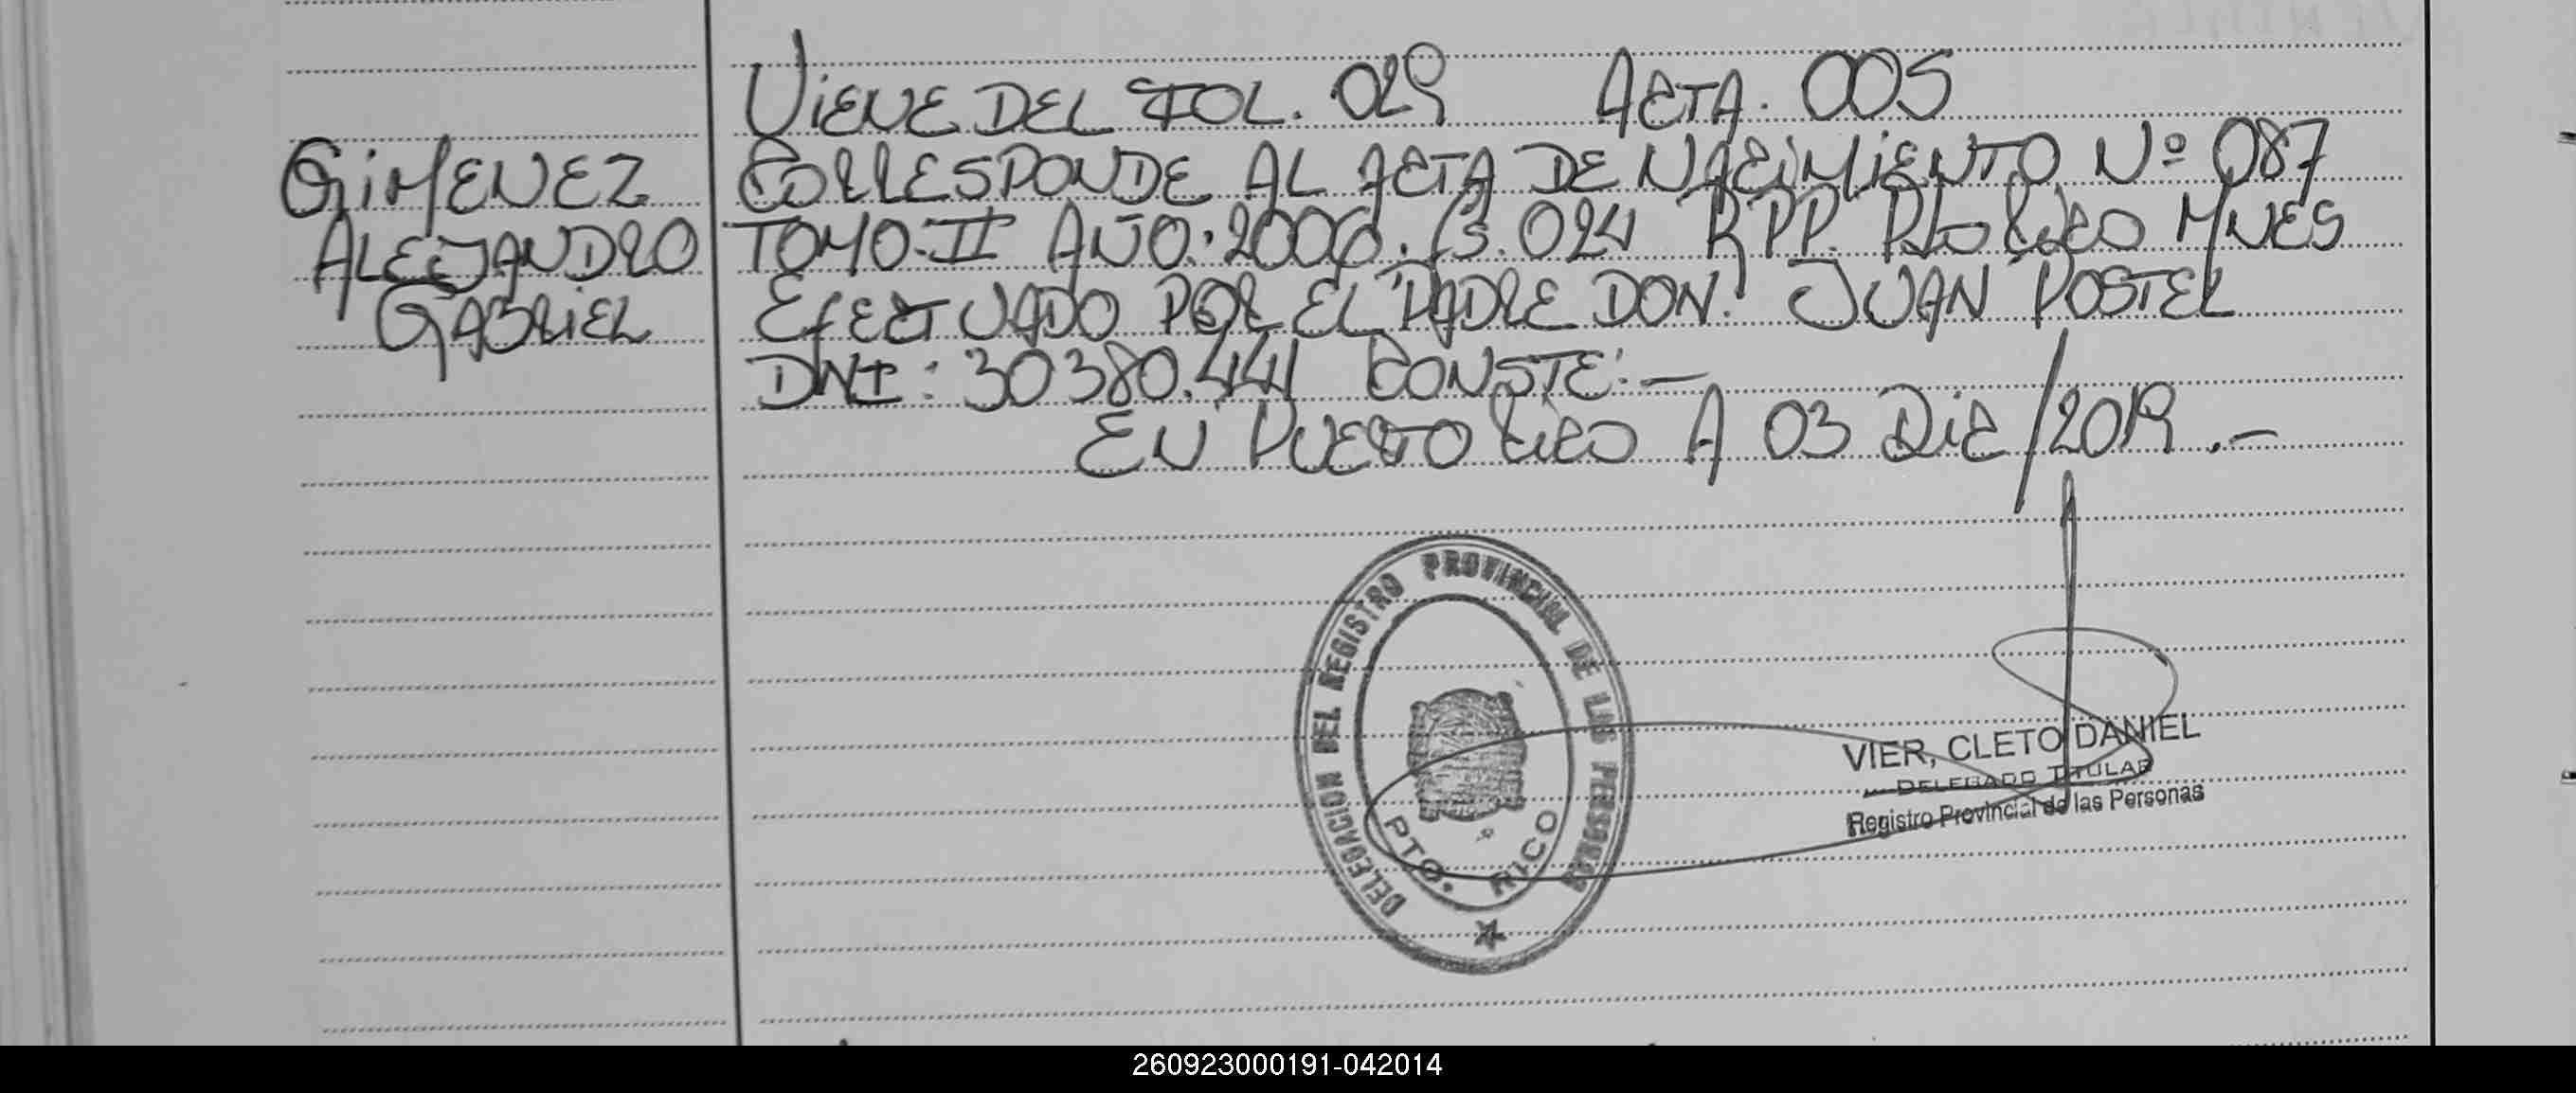 VIENE DEL FOL. 029 ACTA. 005
GIMENEZ
CORRESPONDE AL ACTA DE NACIMIENTO Nº 087
ALEJANDRO
TOMO-II AÑO: 2006. 024 RPP. PTO RICO MNES
GABRIEL
EFECTUADO POR EL PADRE DON: JUAN POSTEL
DNI: 30380.441 CONSTE:—
EN PUERTO RICO A 03 DIC/2019.—
DELEGACION DEL REGISTRO PROVINCIAL DE LAS PERSONAS
PTO. RICO
VIER, CLETO DANIEL
DELEGADO TITULAR
Registro Provincial de las Personas
260923000191-042014